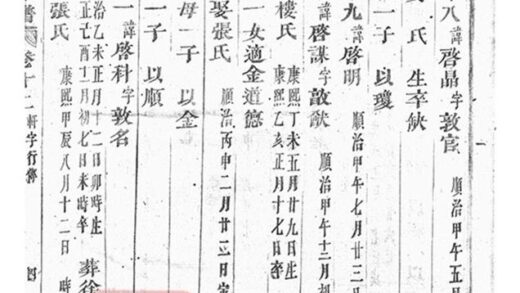 十八 諱啓晶字敦官 順治甲午五月
氏 生卒缺
一子 以瓊
九 諱啓明 順治甲午七月廿三日
諱啓謀字敦猷 順治甲午十二月初
樓氏 康熙丁未五月廿九日生 康熙乙亥正月十七日卒
一女適金道德
娶張氏 順治丙申二月廿三日
母一子 以金
一 諱啓科字敦名 順治乙未正月 二日卯時生 正己酉十月初七日未時卒 葬徐
張氏 康熙甲辰八月十二日 時
一子 以順
譜 卷十二 軒字行傳 四